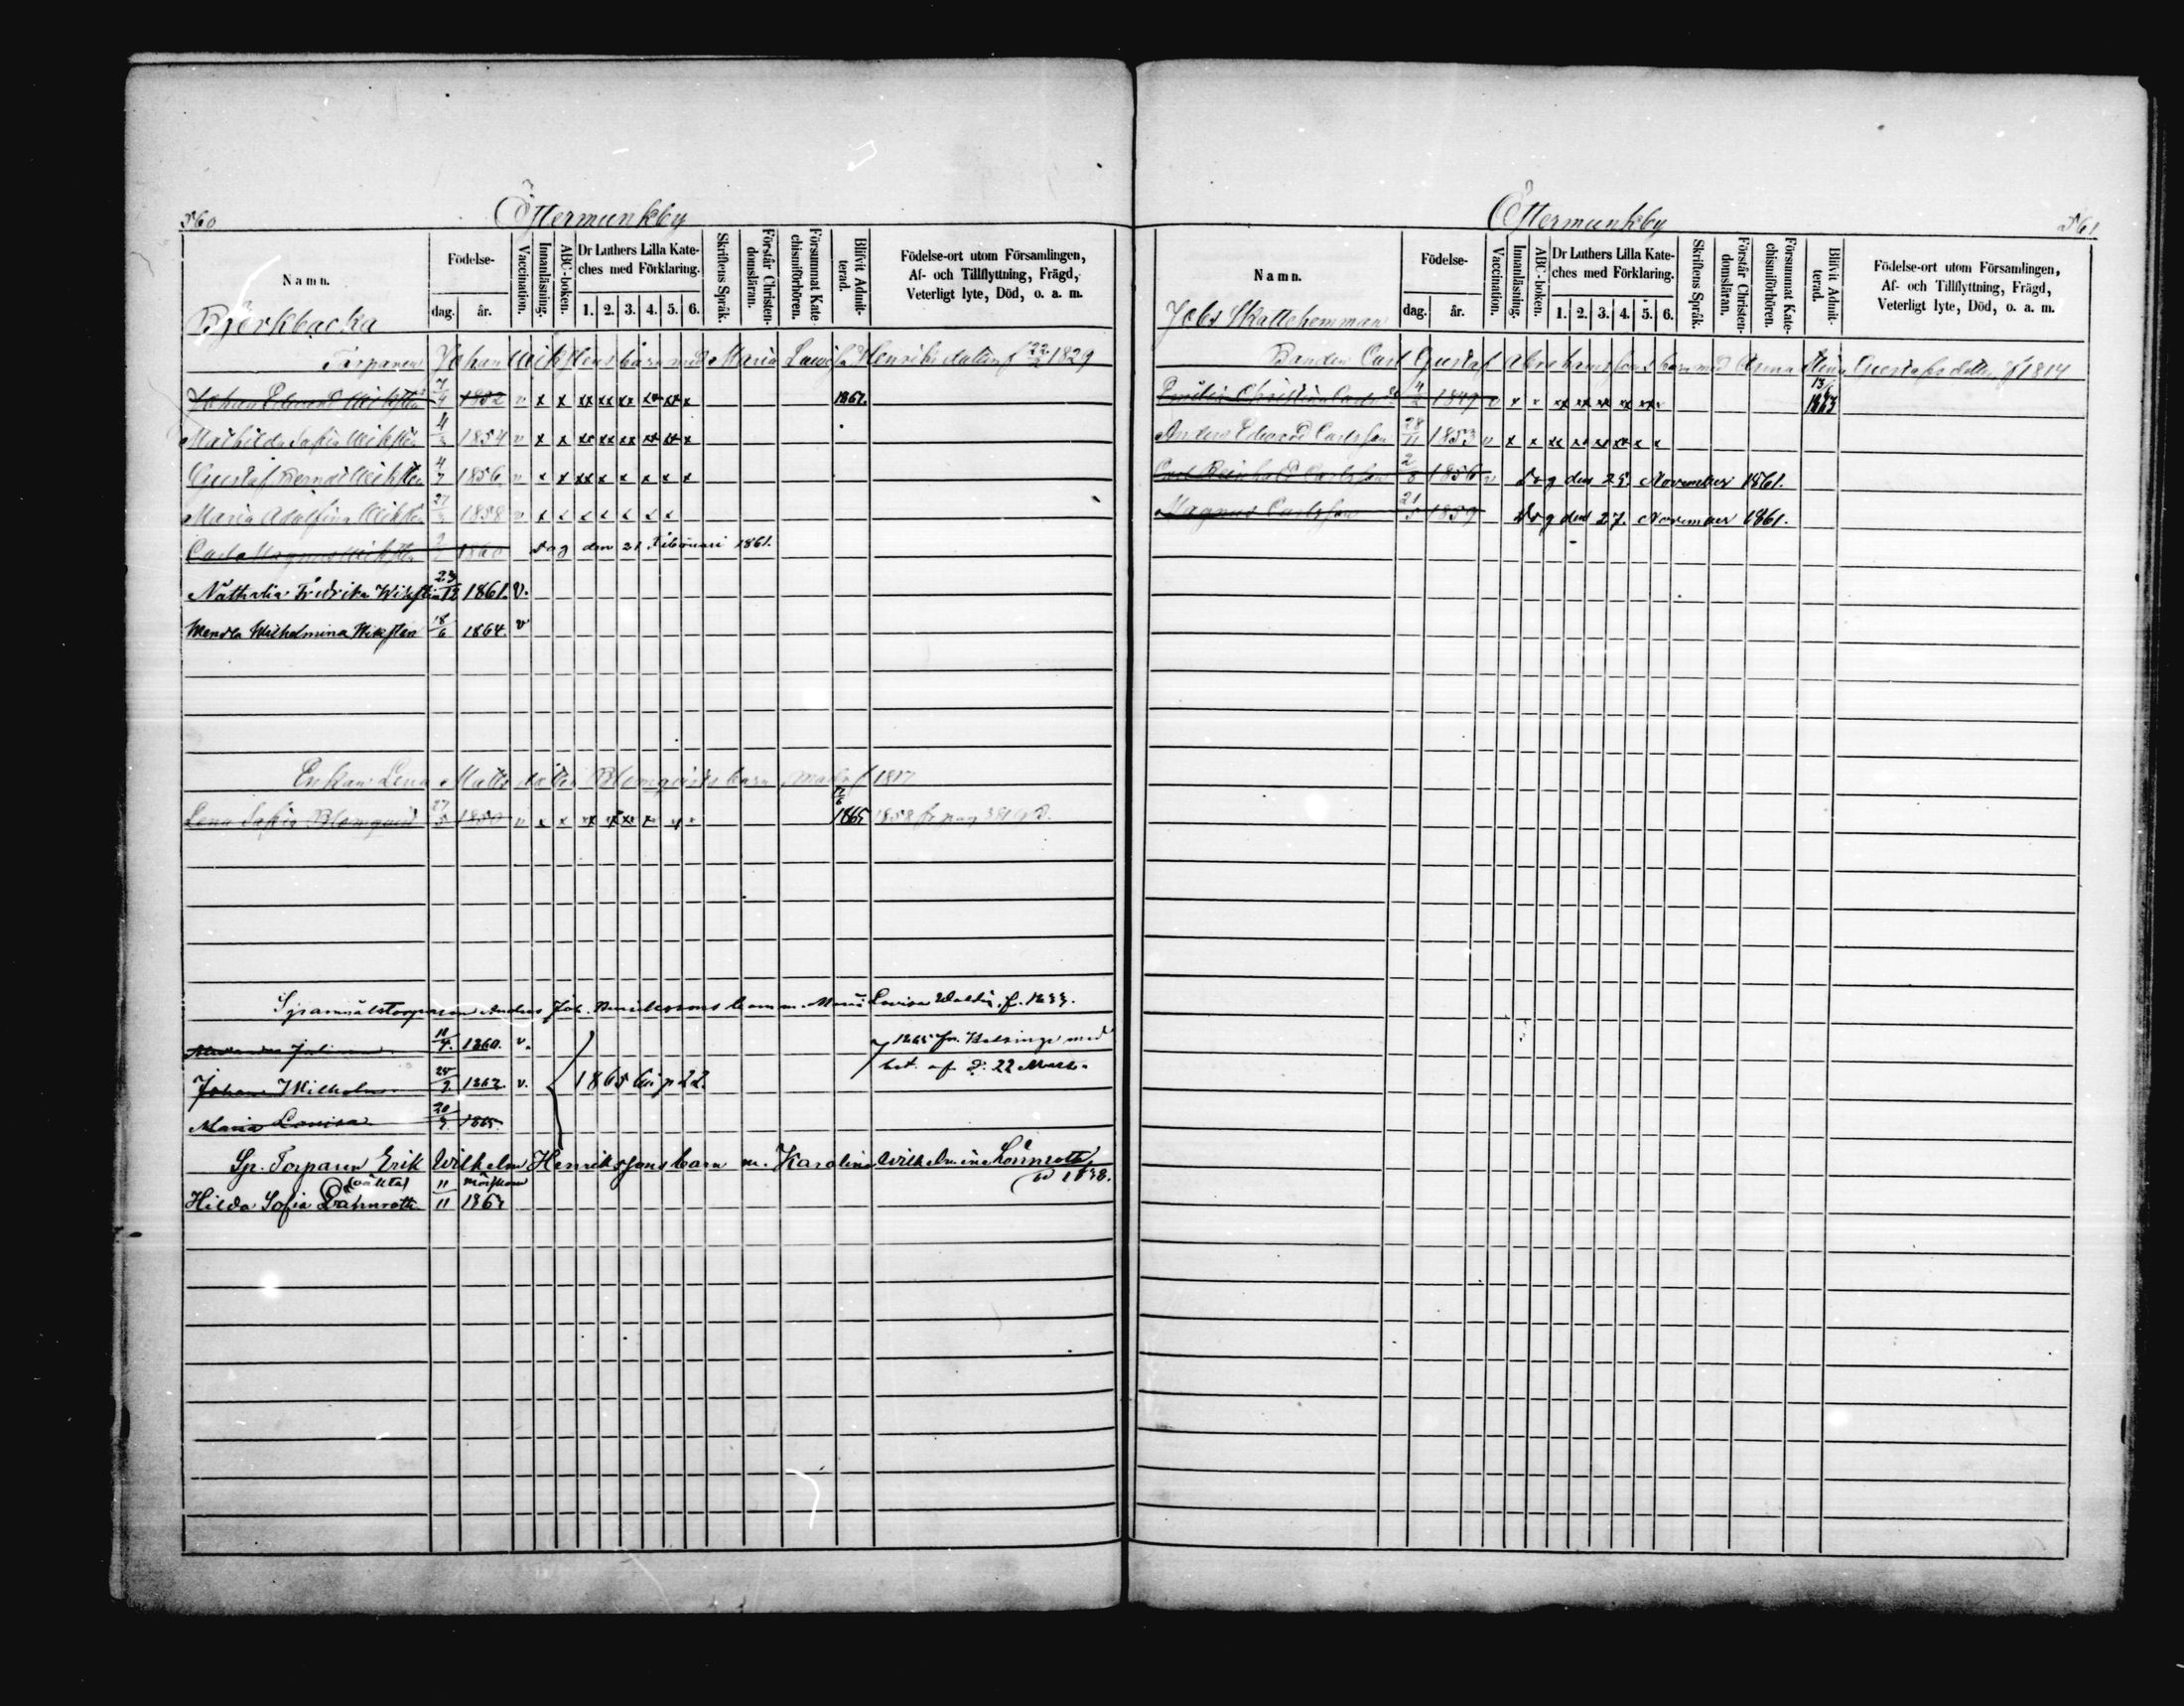 560
Östermunkby
Namn.
Födelse-
dag.
år.
Vaccination.
Innanläsning.
ABC-boken.
Dr Luthers Lilla Kate-
ches med Förklaring.
1. 2. 3. 4. 5. 6.
Skriftens Språk.
Förstår Christen-
domsläran.
Försummat Kate-
chismiförhören.
Blifvit Admit-
terad.
Födelse-ort utom Församlingen,
Af- och Tillflyttning, Frägd,
Veterligt lyte, Död, o. a. m.
Björkbacka
Torparen Johan Wiksténs barn med Maria Lovisa Henriksdotter f 22/2 1829
Johan Edvard Wikstén 7/4 1852 v x x xx xx xx xx xx x 1867.
Mathilda Sofia Wikstén 4/3 1854 v x x xx xx xx xx xx x
Gustaf Berndt Wikstén 4/7 1856 v x x xx x x x x x
Maria Adolfina Wikstén 27/3 1858 v x x x x x x x
Carl Magnus Wikstén 1860 Dog den 21 Februari 1861.
Nathalia Fredrika Wikstén 23/12 1861. v.
Wendla Wilhelmina Wiksten 18/6 1864. v
Enkan Lena Matts dotter Blomqvists barn f 1817
Lena Sofia Blomqvist 27/5 1850 v x x xx xx xx x x x 12/6 1865 1858 fr pag
Spanmålstorparen Anders Joh. barn m. Maria Lovisa f. 1833.
11/4. 1860. v.
Johan Wilhelm 25/2 1862. v. 1865 p 22.
Maria Lovisa 20/3 1865.
1865 fr. Helsinge med
bet. af d. 22 Mars.
Sp. Torparen Erik Wilhelm Henrikssons barn m. Karolina Wilhelmina Lönnroth,
1838.
(oäkta)
Hilda Sofia Lönnroth 11/11 1867

561
Östermunkby
Namn.
Födelse-
dag.
år.
Vaccination.
Innanläsning.
ABC-boken.
Dr Luthers Lilla Kate-
ches med Förklaring.
1. 2. 3. 4. 5. 6.
Skriftens Språk.
Förstår Christen-
domsläran.
Försummat Kate-
chismiförhören.
Blifvit Admit-
terad.
Födelse-ort utom Församlingen,
Af- och Tillflyttning, Frägd,
Veterligt lyte, Död, o. a. m.
Jobs Skattehemman
Bonden Carl Gustaf Abrahamssons barn med Anna Stina Gustafsdotter f 1814
Christina 4/2 1849 v x x xx xx xx xx xx x 1863
Anders Edvard Carlsson 28/11 1853 v x x xx xx xx xx x x
Carl Reinhold Carlsson 2/8 1856 v Dog den 25. November 1861.
Magnus Carlsson 21/5 1859 Dog den 27. November 1861.